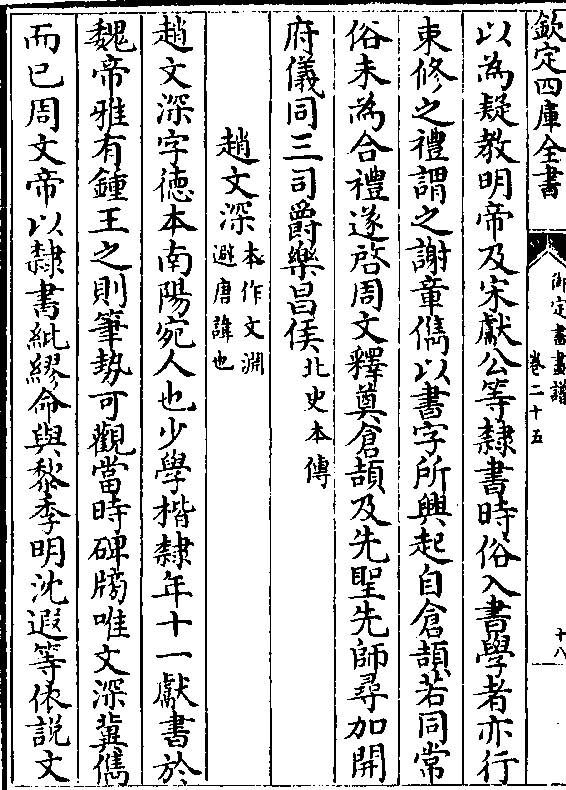 欽定四庫全書
御定書畫譜
卷二十五
十八
以為疑教明帝及宋獻公等隸書時俗入書學者亦行
束修之禮謂之謝章儁以書字所興起自倉頡若同常
俗未為合禮遂啓周文釋奠倉頡及先聖先師尋加開
府儀同三司爵樂昌侯北史本傳
趙文深本作文淵
避唐諱也
趙文深字德本南陽宛人也少學楷隸年十一獻書於
魏帝雅有鍾王之則筆勢可觀當時碑牓唯文深冀儁
而已周文帝以隸書紕繆命與黎季明沈遐等依説文